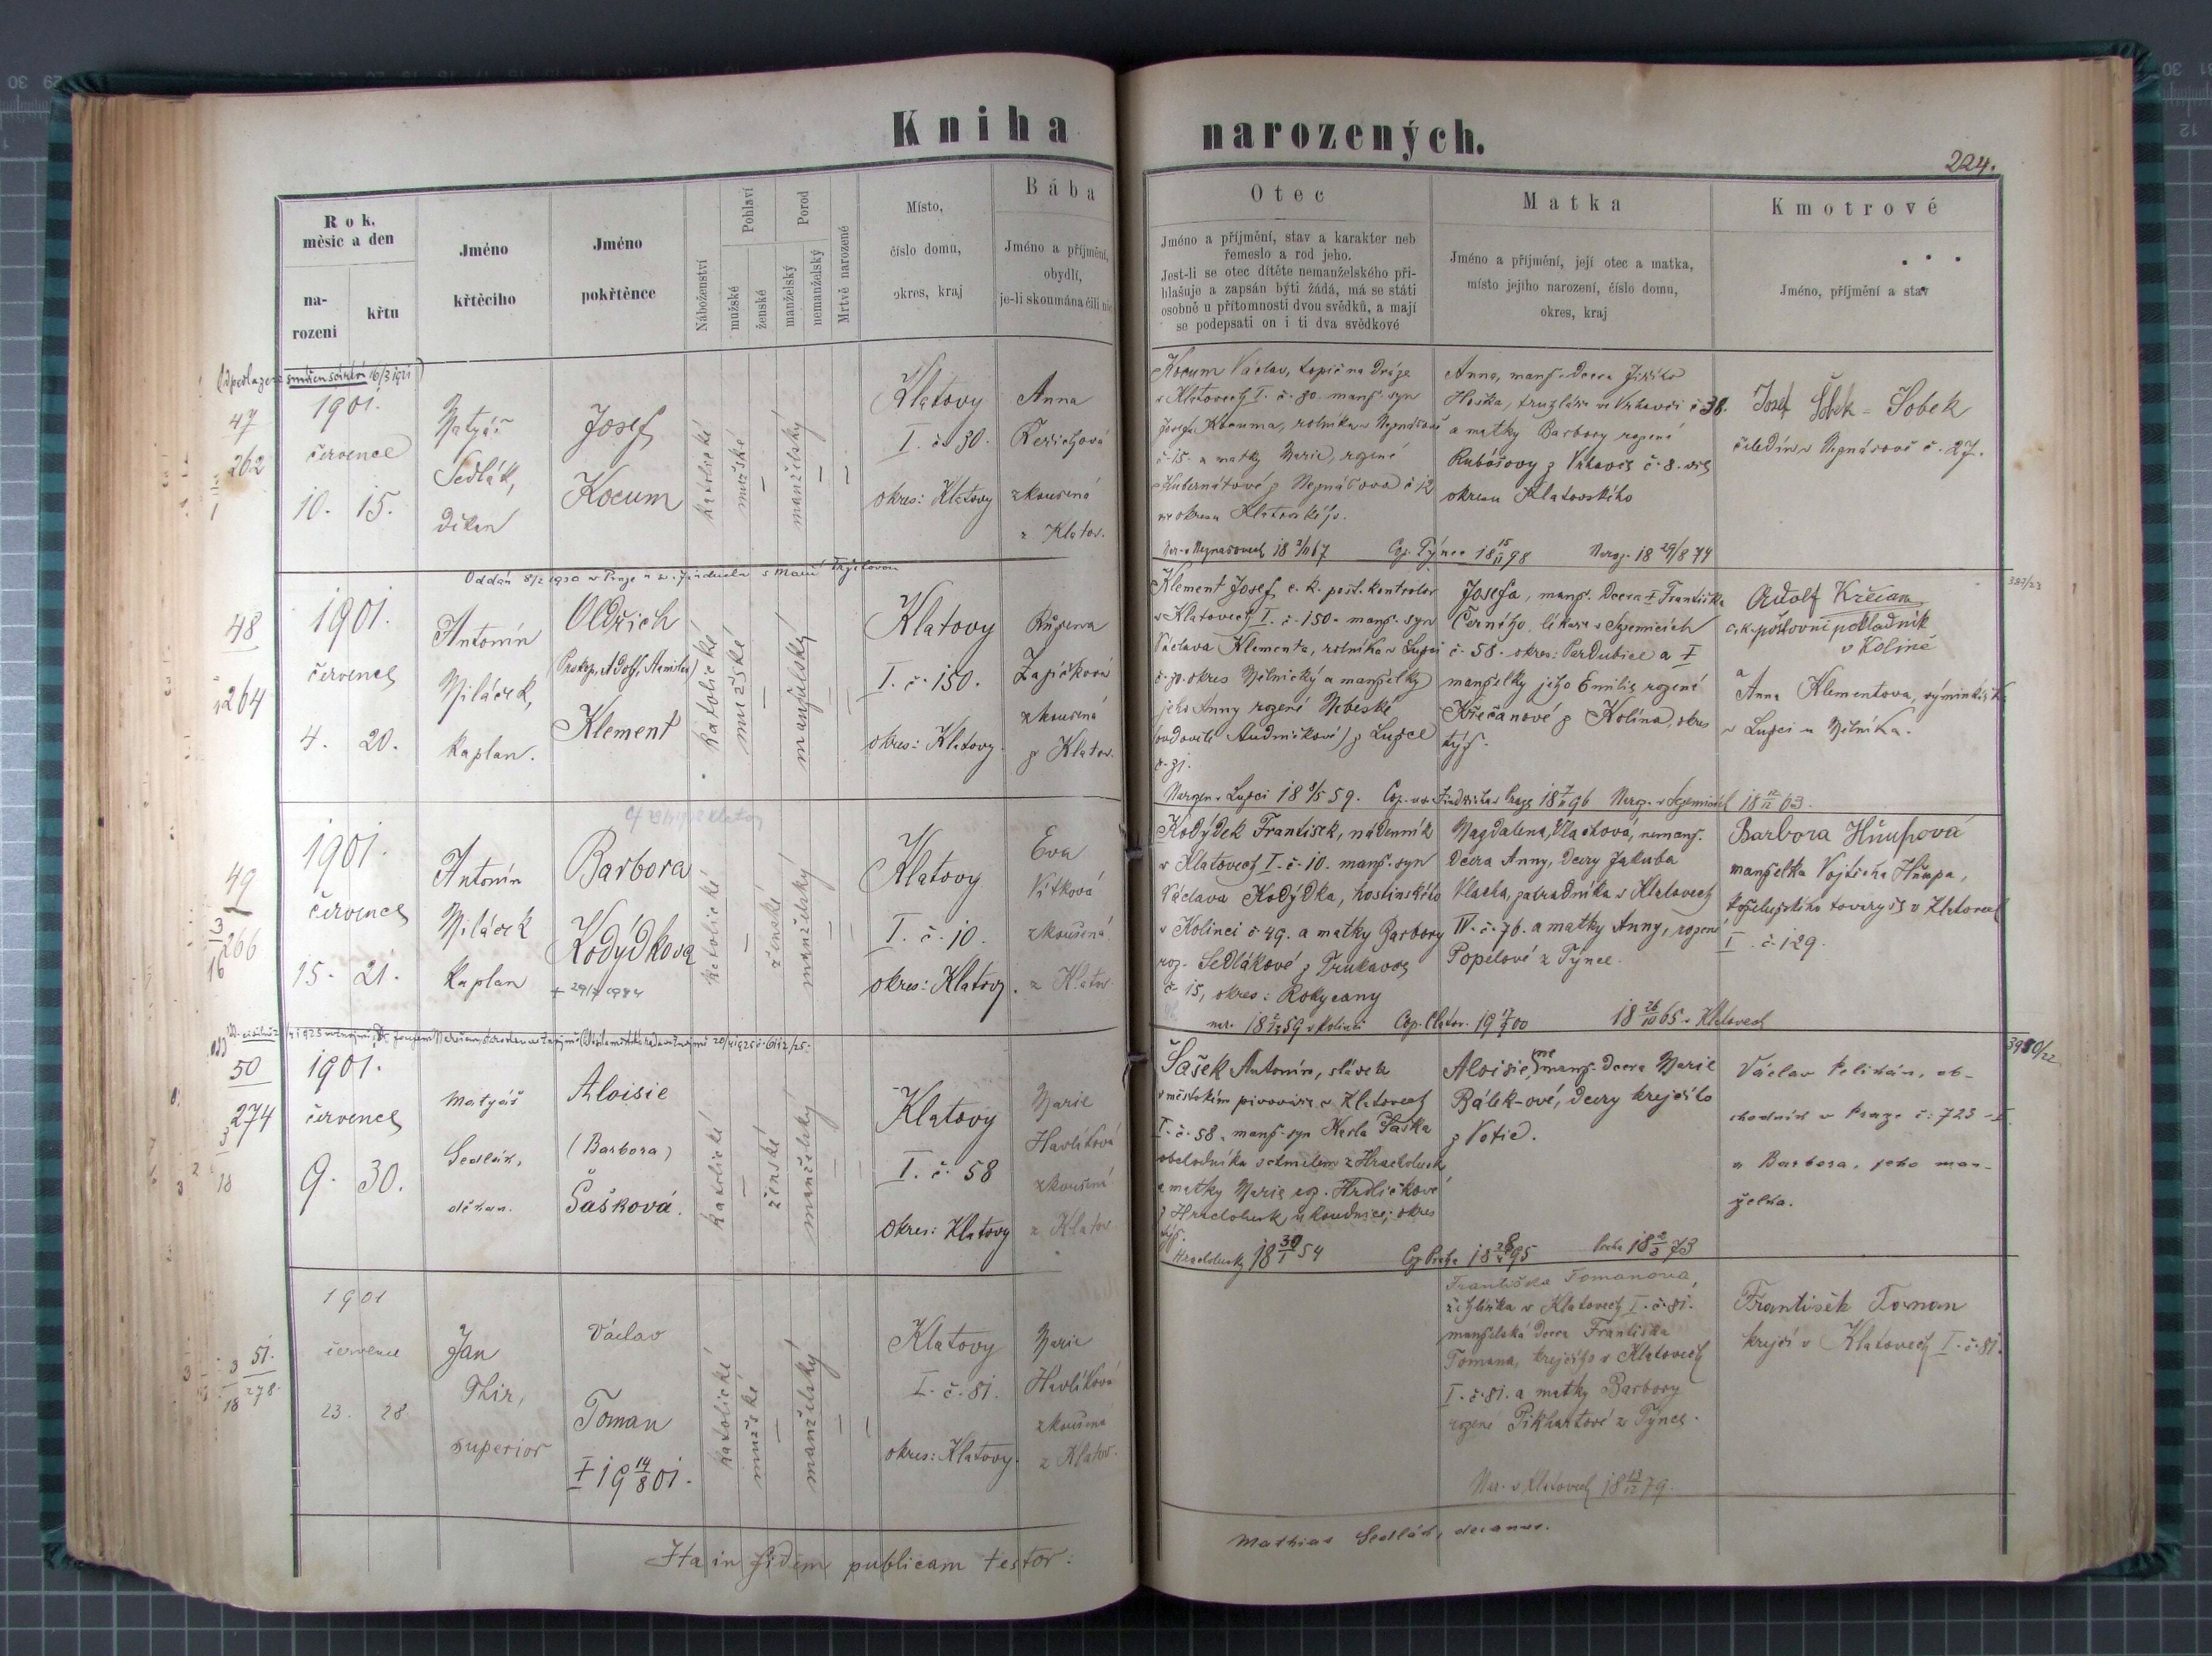 Kniha narozených.
224.
Rok, měsíc a den
narození
křtu
Jméno křtěcího
Jméno pokřtěnce
Náboženství
Pohlaví
mužské
ženské
Porod
manželský
nemanželský
Mrtvě narozené
Místo,
číslo domu,
okres, kraj
Bába
Jméno a příjmění,
obydlí,
je-li skoumána čili nic
Otec
Jméno a příjmění, stav a karakter neb
řemeslo a rod jeho.
Jest-li se otec dítěte nemanželského při-
hlašuje a zapsán býti žádá, má se státi
osobně u přítomnosti dvou svědků, a mají
se podepsati on i ti dva svědkové
Matka
Jméno a příjmění, její otec a matka,
místo jejího narození, číslo domu,
okres, kraj
Kmotrové
Jméno, příjmění a stav
16/3 1921
47
262
1901.
července
10. 15.
Matyáš
Sedlák,
děkan
Josef
Kocum
katolické
mužské
manželský
Klatovy
I. č. 80.
okres: Klatovy
Anna
zkoušená
z Klatov.
Kocum Václav, topič na dráze
v Klatovech I. č. 80. manž. syn
Josefa Kocuma, rolníka v
č. 15. a matky Marie, rozené
č. 12
okresu Klatovského.
Anna, manž. dcera Jiřího
truhláře č 38.
a matky Barbory rozené
č. 8. vše
okresu Klatovského
Josef Šobek = Sobek
čeledín v č. 27.
Cop. Týnec 18 15/11 98
Naroz. 18 29/8 74
Oddán 8/2 1930 v Praze u sv. Jindřicha s Marií
48
264
1901.
červenec
4. 20.
Antonín
Miláček,
kaplan.
Oldřich
(Prokop, Adolf, Stanislav)
Klement
katolické
mužské
manželský
Klatovy
I. č. 150.
okres: Klatovy
Růžena
Zajíčková
zkoušená
z Klatov.
Klement Josef, c. k. pošt. kontrolor
v Klatovech I. č. 150. manž. syn
Václava Klementa, rolníka v Lužci
okres Mělnický a manželky
jeho Anny rozené Nebeské
z Lužce
Josefa, manž. dcera † Františka
Černého, lékaře v
č. 58. okres: Pardubice a †
manželky jeho Emilie rozené
Křečanové z Kolína, okres
týž.
Adolf Křečan
c.k. poštovní pokladník
v Kolíně
a
Anna Klementova,
v Lužci u Mělníka.
387/23
Narozen v Lužci 18 9/5 59.
49
266
1901.
červenec
15. 21.
Antonín
Miláček
kaplan
Barbora
Kodýdkova
katolické
ženské
manželský
Klatovy
I. č. 10.
okres: Klatovy.
Eva
Vítková
zkoušená
z Klatov.
Kodýdek František, nádenník
v Klatovech I. č. 10. manž. syn
Václava Kodýdka, hostinského
v Kolinci č 49. a matky Barbory
roz. Sedlákové z
č 15, okres: Rokycany
Magdalena, Vlachová, nemanž.
dcera Anny, dcery Jakuba
Vlacha, zahradníka v Klatovech
IV. č. 76. a matky Anny, rozené
Popelové z Týnce.
Barbora Hňupová
manželka Vojtěcha Hňupa,
v Klatovech
I. č. 129.
v Kolinci Cop. Klatov. 19 00
18 26/10 65 v Klatovech
50
274
1901.
červenec
9. 30.
Matyáš
Sedlák,
děkan.
Aloisie
(Barbora)
Šašková.
katolické
ženské
manželský
Klatovy
I. č. 58
okres: Klatovy
Marie
Havlíková
zkoušená
z Klatov
Šašek Antonín, sládek
v městském pivováře v Klatovech
I. č. 58, manž. syn Karla Šaška
obchodníka s chmelem z
a matky Marie roz. Hrdličkové
okres
týž.
Aloisie, nemanž. dcera Marie
Bálek-ové, dcery krejčího
z Votic.
Václav Pelikán, ob-
chodník v Praze č: 723 - I
a Barbora, jeho man-
želka.
18 30/1 54
Cop Praha
Praha
51.
278.
1901
červenec
23. 28
Jan
Thir,
superior
Václav
Toman
† 19 14/8 01.
katolické
mužské
manželský
Klatovy
I. č. 81.
okres: Klatovy.
Marie
Havlíková
zkoušená
z Klatov.
Františka Tomanova,
v Klatovech I. č. 81.
manželská dcera Františka
Tomana, krejčího v Klatovech
I. č. 81. a matky Barbory
rozené Pikhartové z Týnce.
Nar. v Klatovech 18 13/12 79.
František Toman
krejčí v Klatovech I. č. 81.
Ita in fidem publicam testor:
Mathias Sedlák, decanus.